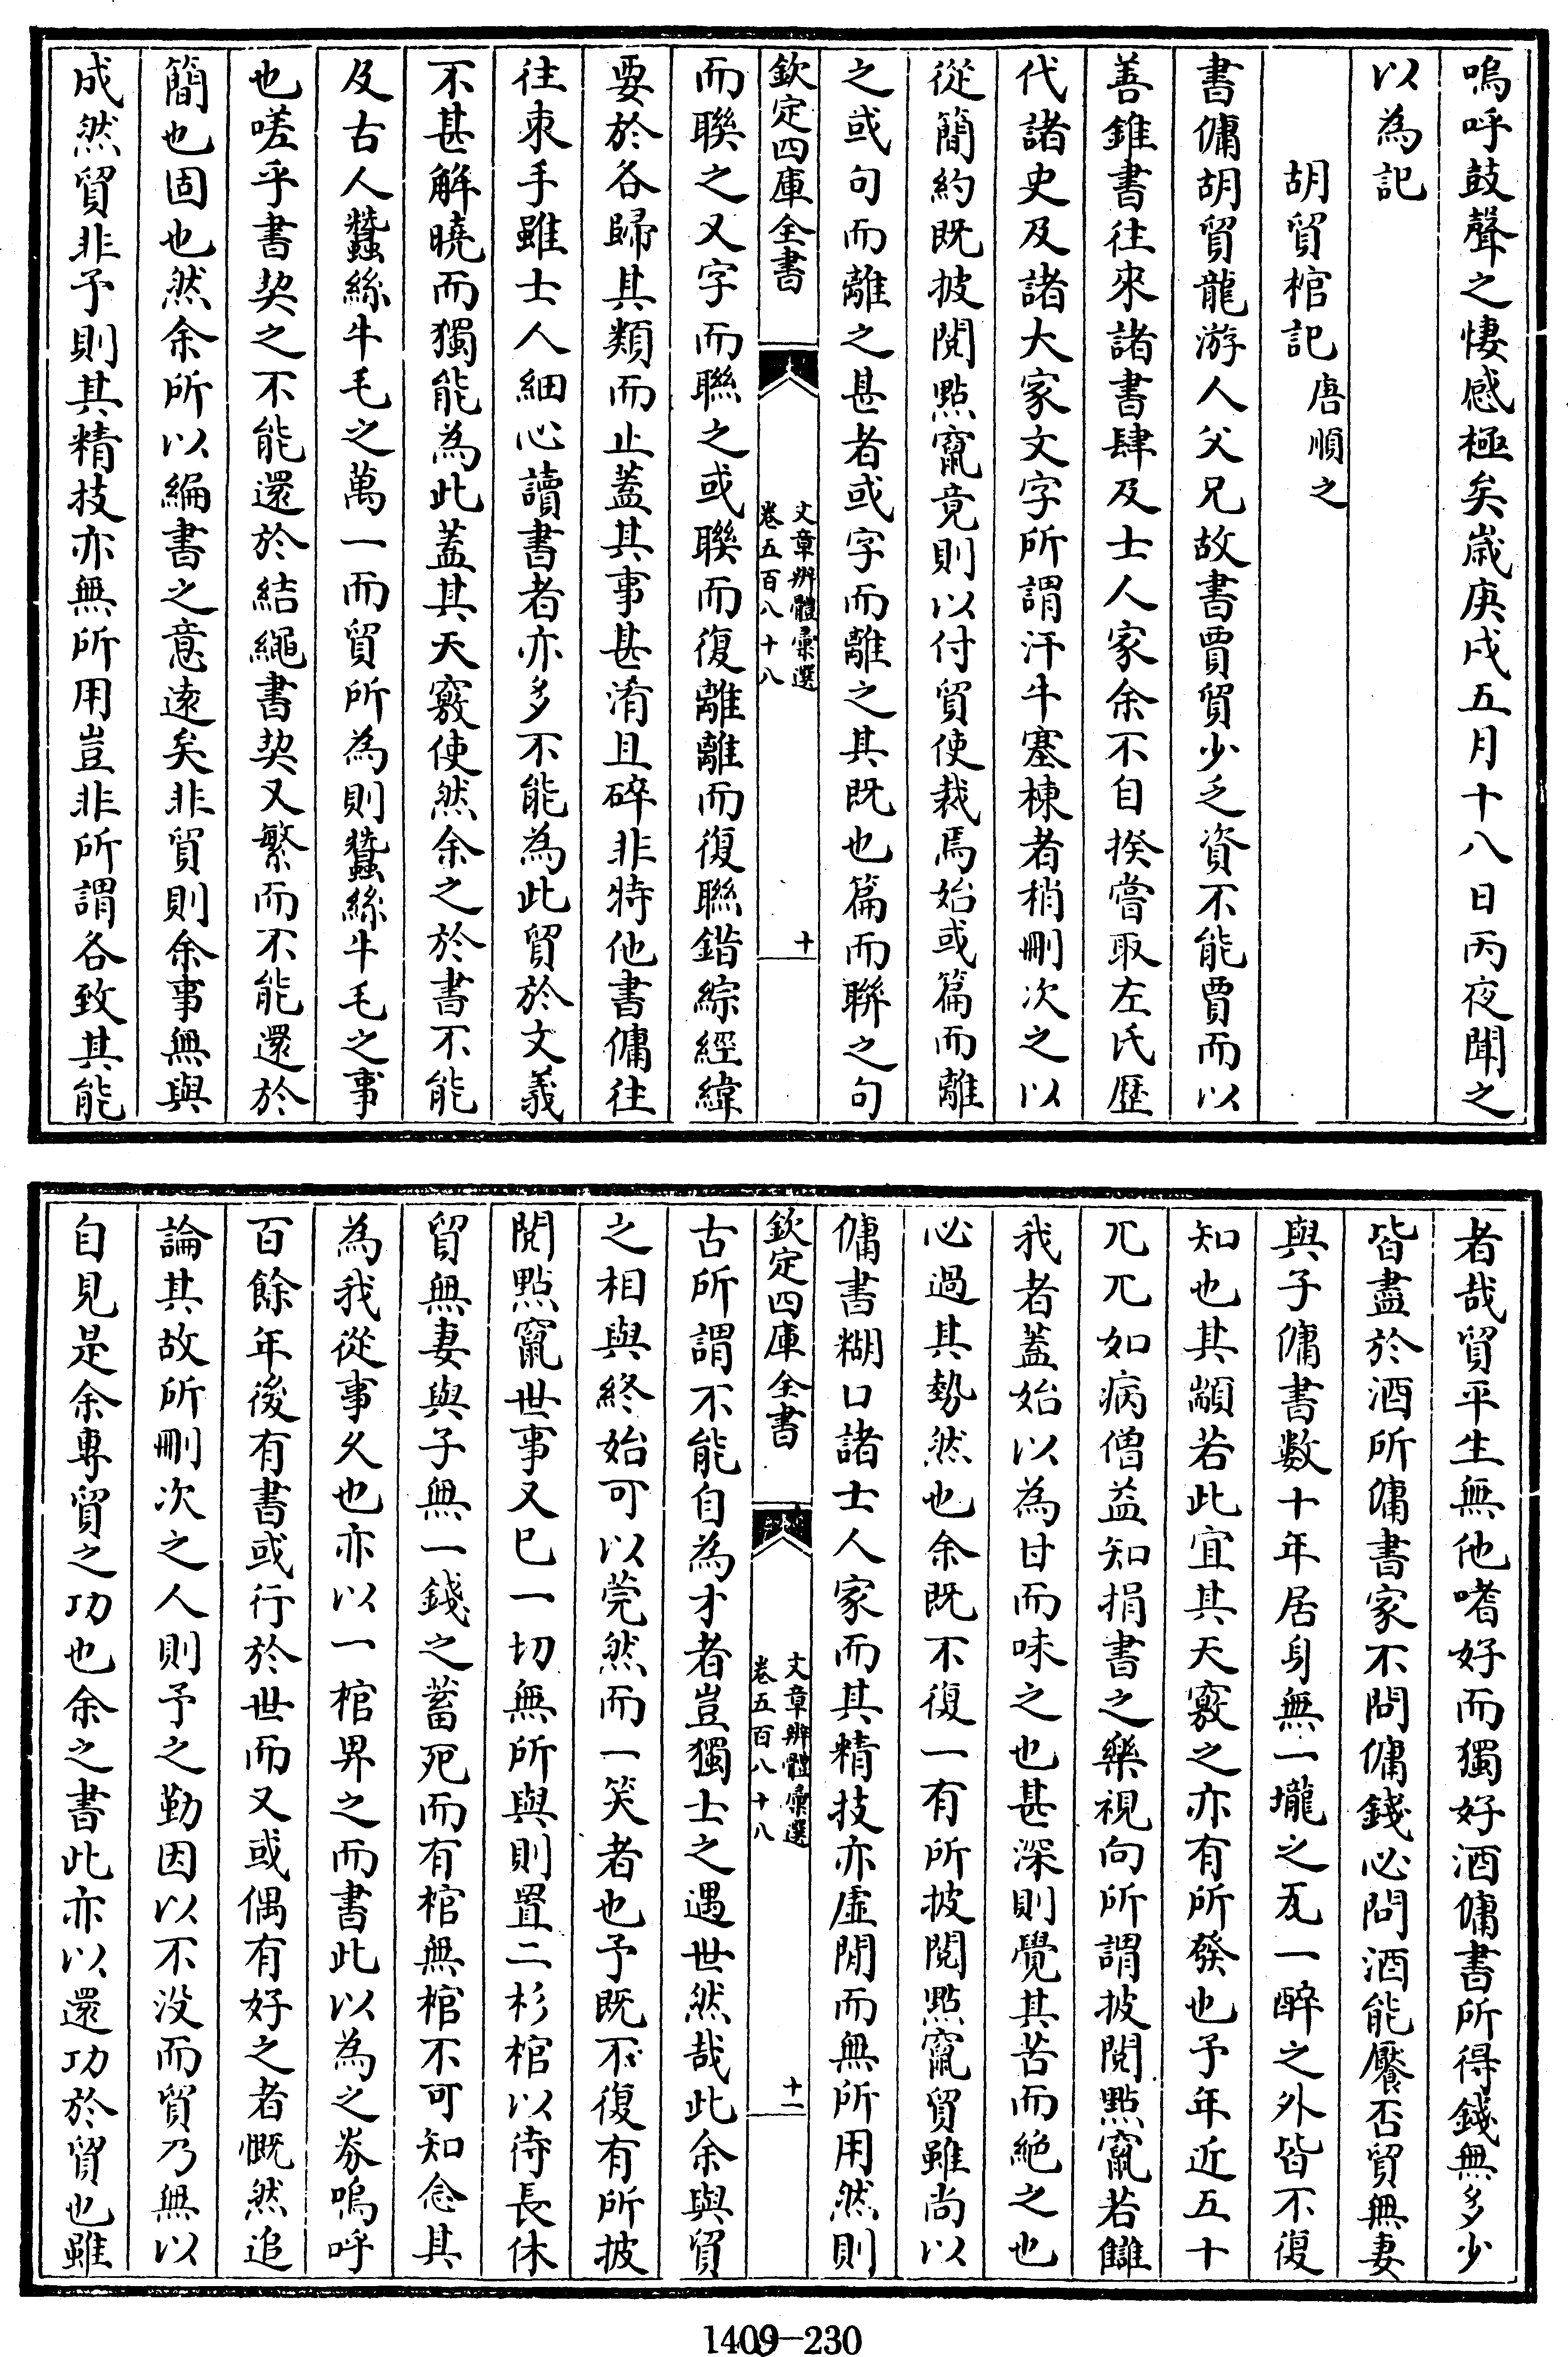 嗚呼鼓聲之悽感極矣歲庚戌五月十八日丙夜聞之
以為記
胡貿棺記 唐順之
書傭胡貿龍游人父兄故書賈貿少乏資不能賈而以
善錐書往來諸書肆及士人家余不自揆嘗取左氏歷
代諸史及諸大家文字所謂汗牛塞棟者稍刪次之以
從簡約既披閱點竄竟則以付貿使裁焉始或篇而離
之或句而離之甚者或字而離之其既也篇而聯之句
欽定四庫全書
文章辨體彙選
卷五百八十八
十
而聯之又字而聯之或聯而復離離而復聯錯綜經緯
要於各歸其類而止蓋其事甚淆且碎非特他書傭往
往束手雖士人細心讀書者亦多不能為此貿於文義
不甚解曉而獨能為此蓋其天竅使然余之於書不能
及古人蠶絲牛毛之萬一而貿所為則蠶絲牛毛之事
也嗟乎書契之不能還於結繩書契又繁而不能還於
簡也固也然余所以編書之意遠矣非貿則余事無與
成然貿非予則其精技亦無所用豈非所謂各致其能
者哉貿平生無他嗜好而獨好酒傭書所得錢無多少
皆盡於酒所傭書家不問傭錢必問酒能饜否貿無妻
與子傭書數十年居身無一壠之瓦一醉之外皆不復
知也其顓若此宜其天竅之亦有所發也予年近五十
兀兀如病僧益知捐書之樂視向所謂披閱點竄若讎
我者蓋始以為甘而味之也甚深則覺其苦而絕之也
必過其勢然也余既不復一有所披閱點竄貿雖尚以
傭書糊口諸士人家而其精技亦虛閒而無所用然則
欽定四庫全書
文章辨體彙選
卷五百八十八
十一
古所謂不能自為才者豈獨士之遇世然哉此余與貿
之相與終始可以莞然而一笑者也予既不復有所披
閱點竄世事又已一切無所與則置二杉棺以待長休
貿無妻與子無一錢之蓄死而有棺無棺不可知念其
為我從事久也亦以一棺畀之而書此以為之券嗚呼
百餘年後有書或行於世而又或偶有好之者慨然追
論其故所刪次之人則予之勤因以不沒而貿乃無以
自見是余專貿之功也余之書此亦以還功於貿也雖
1409-230